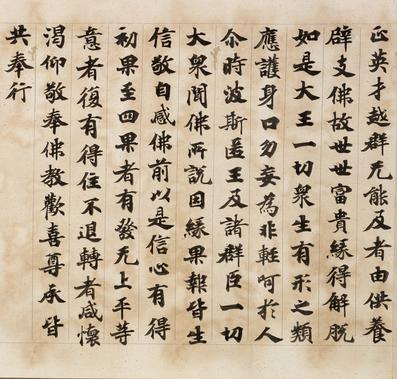 正英才越群无能及者由供養
辟支佛故世世富貴緣得解脫
如是大王一切衆生有形之類
應護身口勿妄為非輕呵於人
尒時波斯匿王及諸群臣一切
大衆聞佛所說因緣果報皆生
信敬自感佛前以是信心有得
初果至四果者有發无上平等
意者復有得住不退轉者咸懷
渴仰敬奉佛教歡喜尊承皆
共奉行